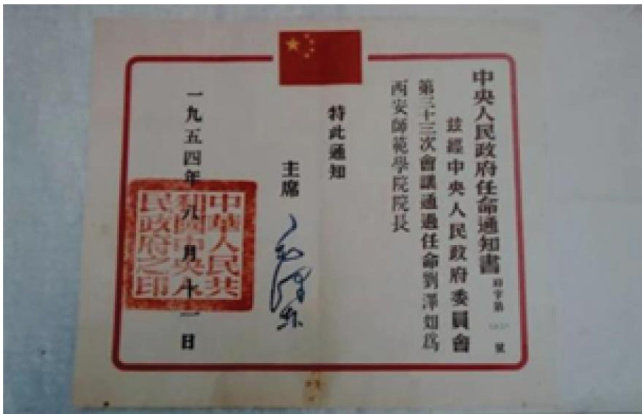 中央人民政府任命通知書 府字第 號
茲經中央人民政府委員會
第三十三次會議通過任命劉澤如爲
西安師範學院院長
特此通知
主席
毛澤東
一九五四年八月十二日
中華人民共
和國中央人
民政府之印